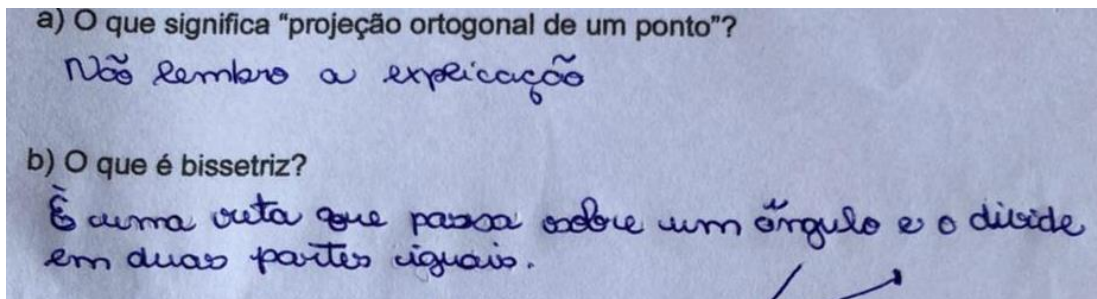 a) O que significa "projeção ortogonal de um ponto"?
Não lembro a explicação
b) O que é bissetriz?
É uma reta que passa sobre um ângulo e o divide
em duas partes iguais.